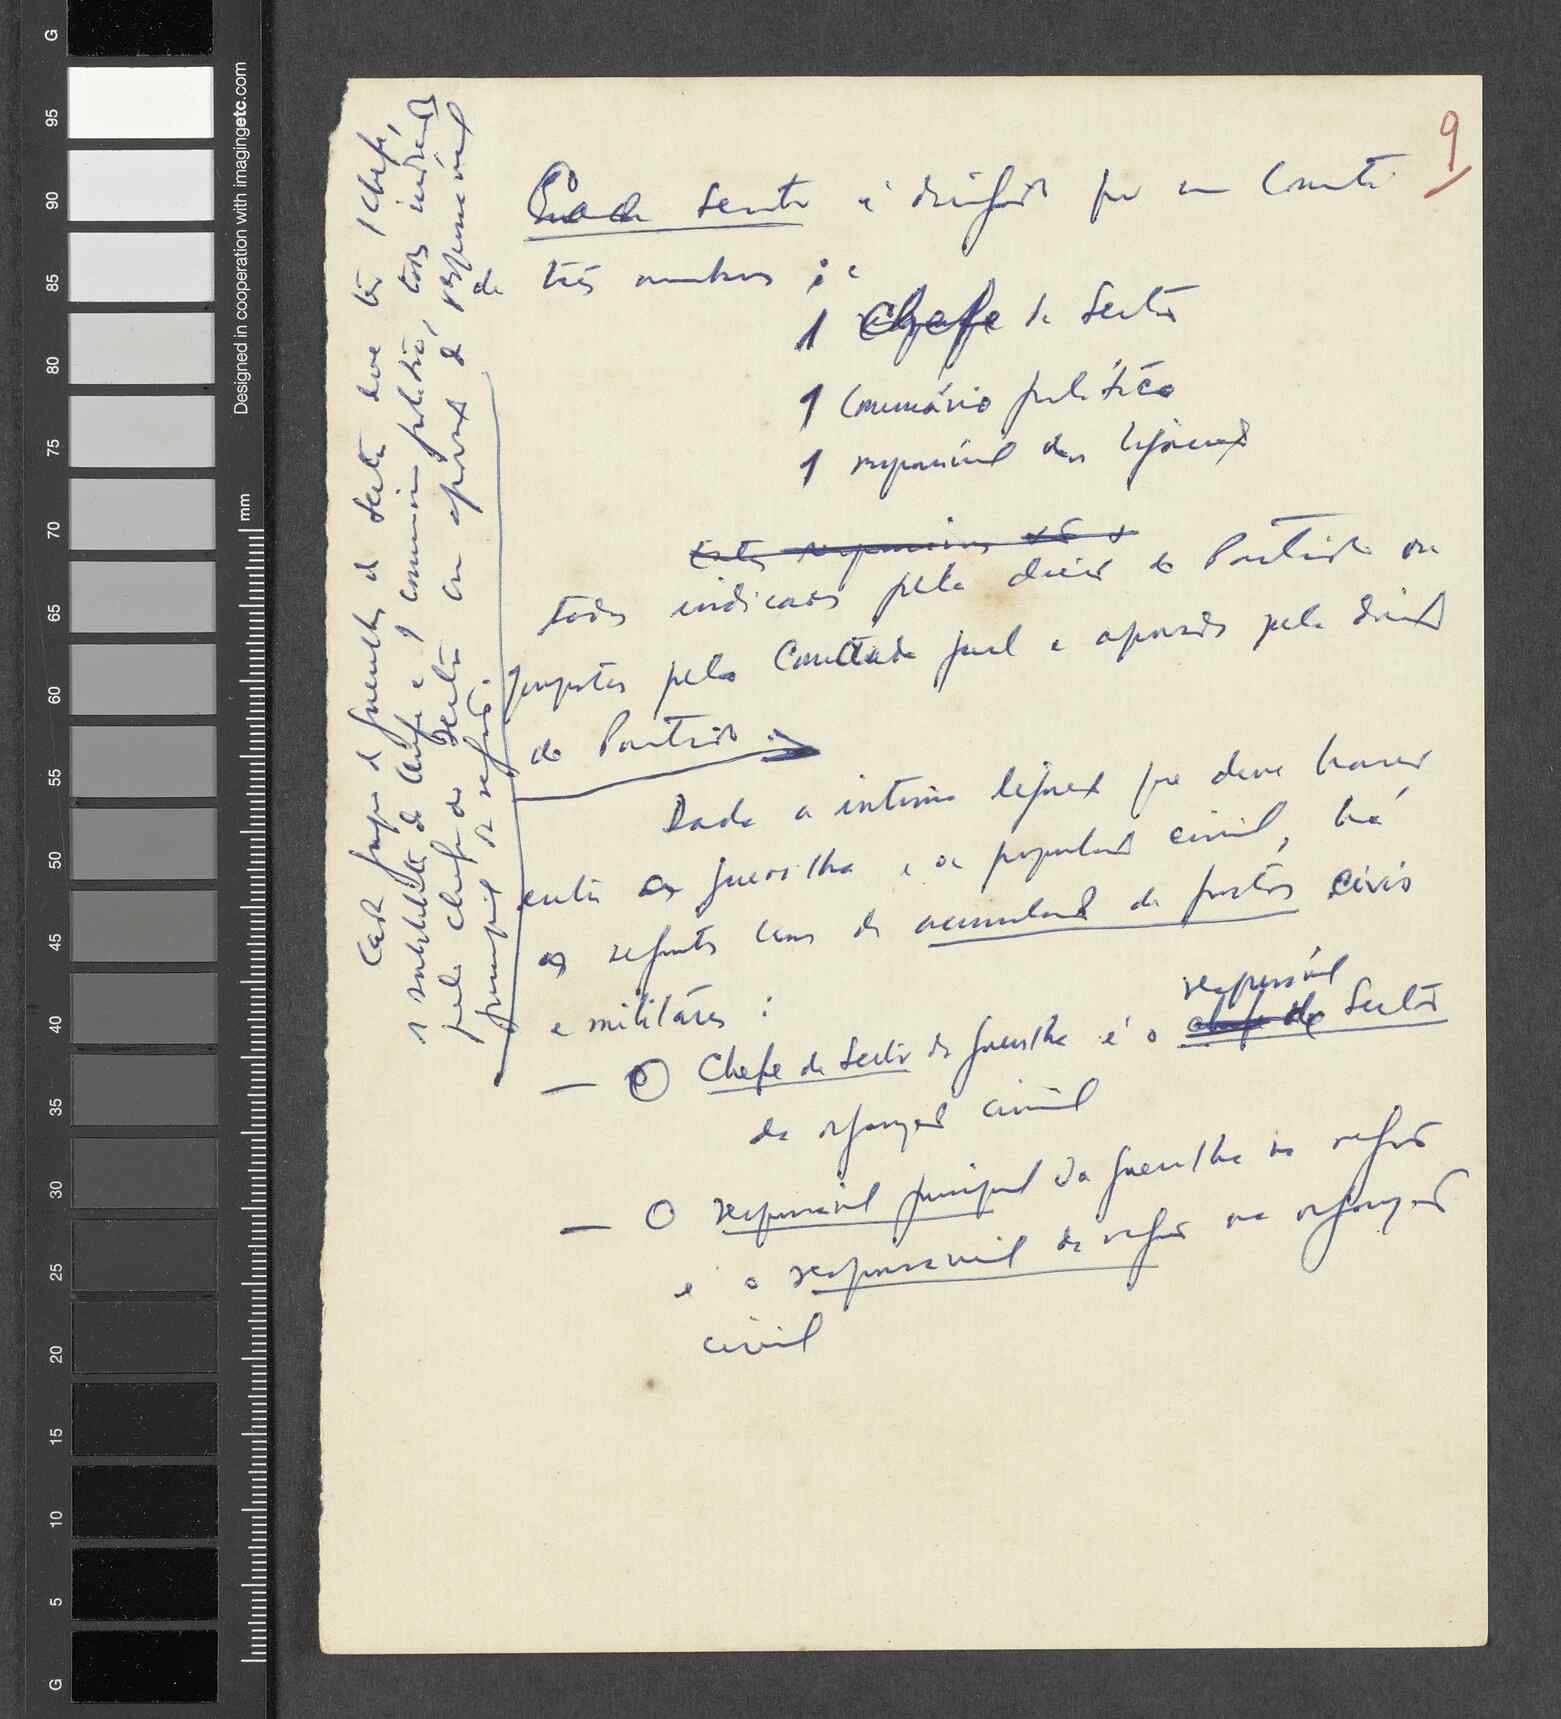 9
Cada Sector é dirigido por um Comité de
três membros :
1 Chefe de Sector
1 Comissário político
1 responsável das ligações
Estes responsáveis são
todos indicados pela direcção do Partido ou
propostos pelo Comando geral e aprovados pela direcção
do Partido.
Dada a íntima ligação que deve haver
entre a guerrilha e a população civil, há
os seguintes casos de acumulação de postos civis
e militares :
responsável
— O Chefe de Sector da guerrilha é o chefe do Sector
da organização civil
— O responsável principal da guerrilha na região
é o responsável da região na organização
civil
Cada grupo de guerrilha do Sector deve ter 1 chefe,
1 substituto do chefe e 1 comissário político, todos indicados
pelo chefe do Sector com aprovação do responsável
principal da região.
Designed in cooperation with imagingetc.com
mm
G
95
90
85
80
75
70
65
60
55
50
45
40
35
30
25
20
15
10
5
G